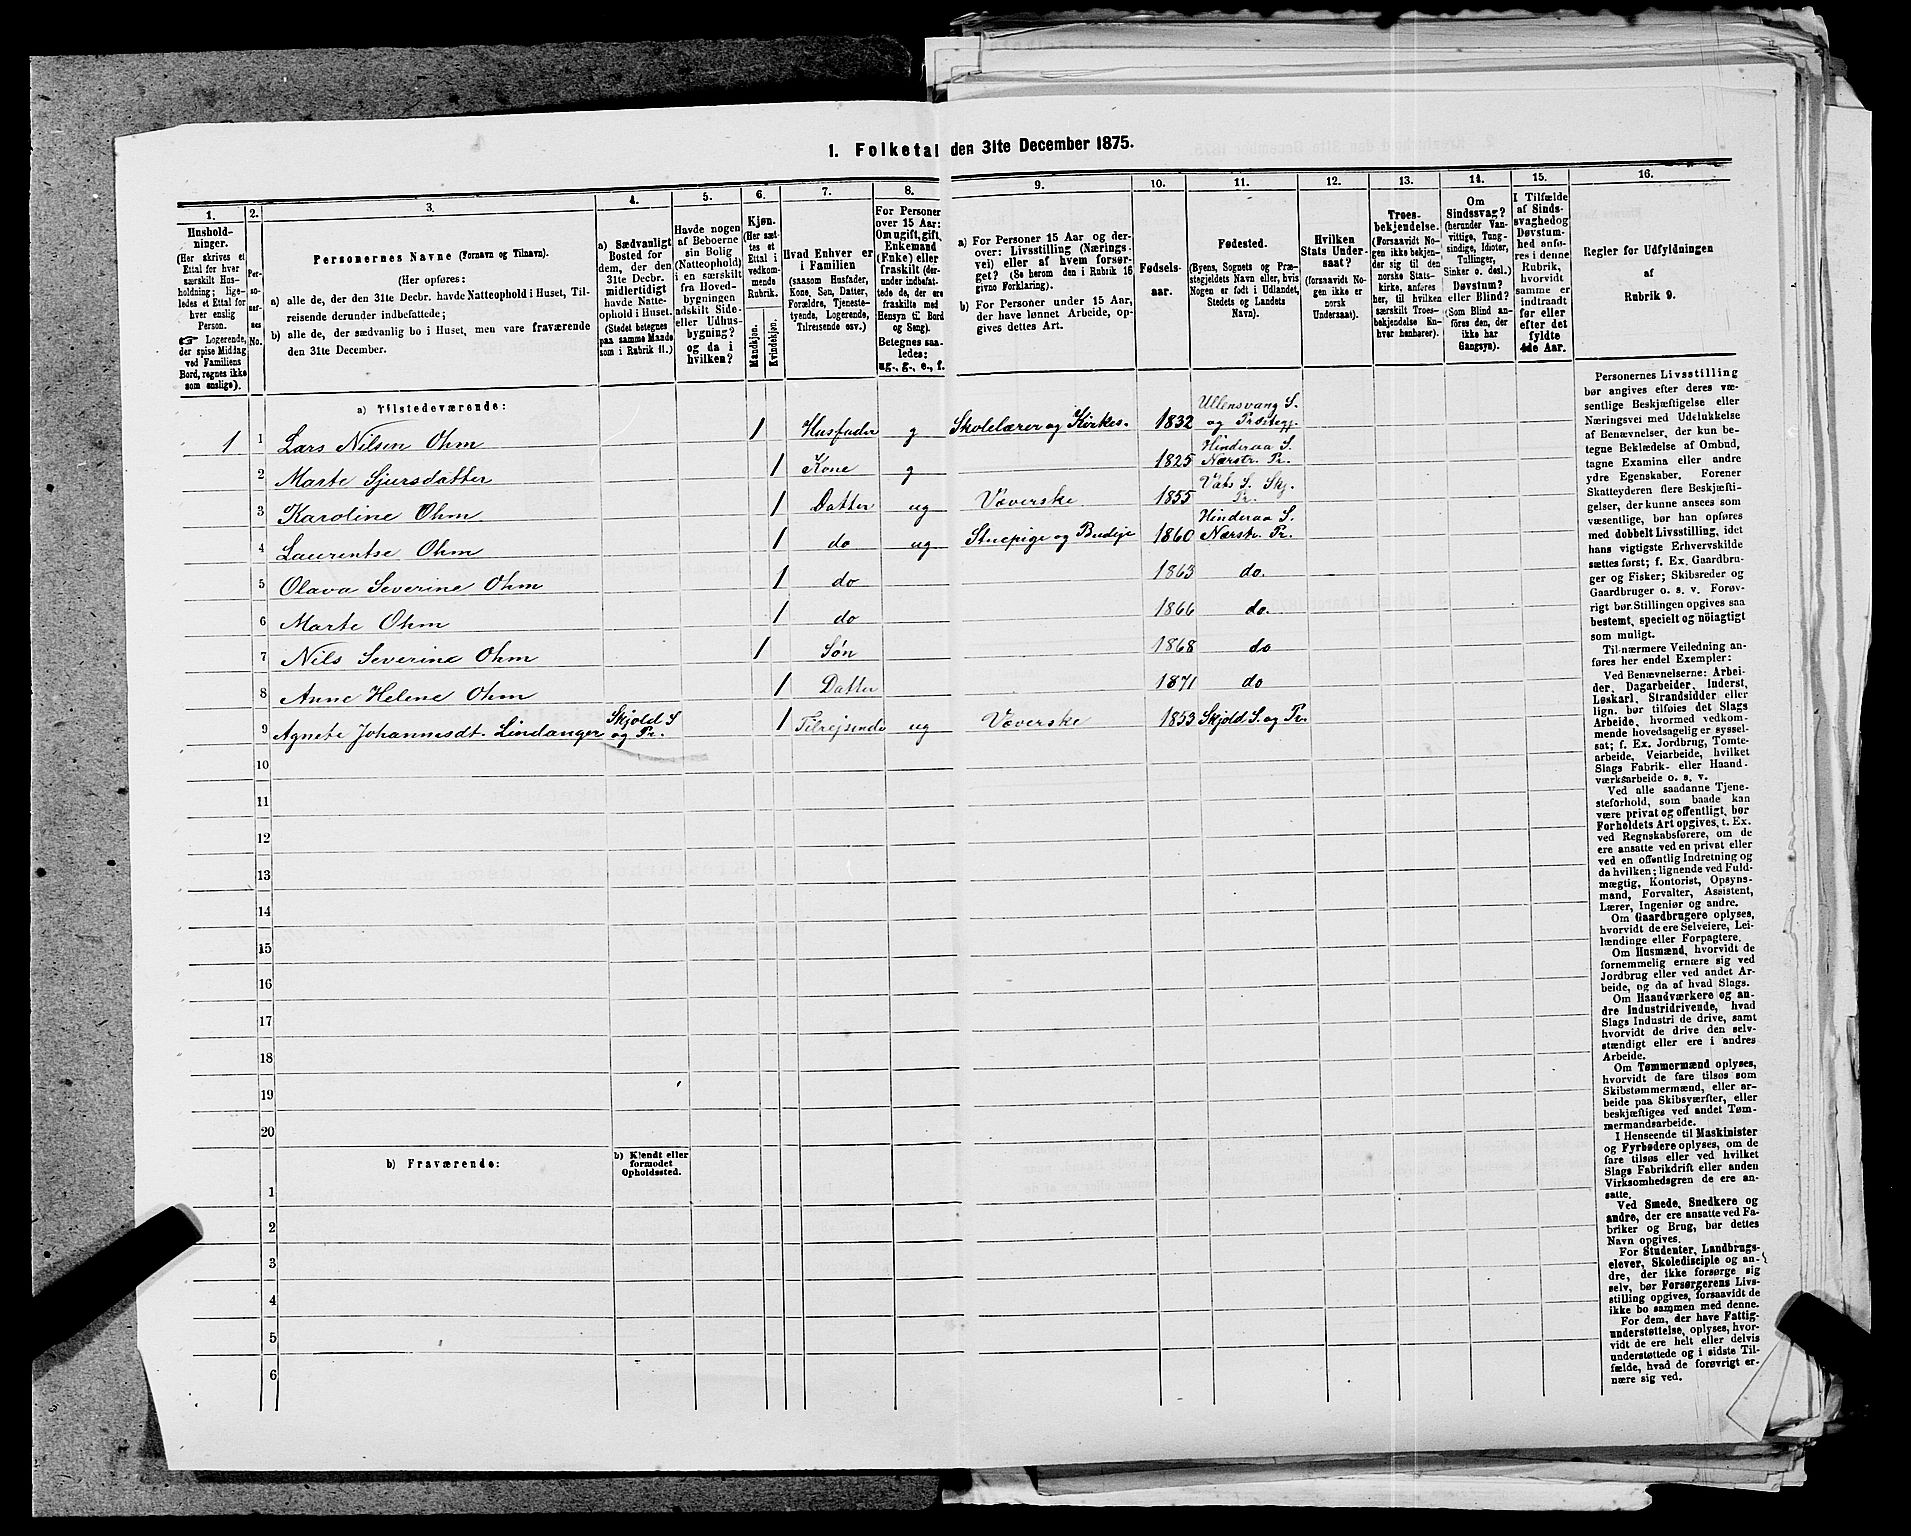 1. Folketal den 31te December 1875.
1. 2. 3. 4. 5. 6. 7. 8. 9. 10. 11. 12. 13. 14. 15. 16.
Hushold-
ninger.
(Her skrives et
Ettal for hver
særskilt Hus-
holdning; lige-
ledes et Ettal for
hver enslig
Person.
☞ Logerende,
der spise Middag
ved Familiens
Bord, regnes ikke
som enslige).
Per-
so-
ner-
nes
No.
Personernes Navne (Fornavn og Tilnavn).
(Her opføres:
a) alle de, der den 31te Decbr. havde Natteophold i Huset, Til-
reisende derunder indbefattede;
b) alle de, der sædvanlig bo i Huset, men vare fraværende
den 31te December.
a) Sædvanligt
Bosted for
dem, der den
31te Decbr.
midlertidigt
havde Natte-
ophold i Huset.
(Stedet betegnes
paa samme Maade
som i Rubrik 11.)
Havde nogen
af Beboerne
sin Bolig
(Natteophold)
i en særskilt
fra Hoved-
bygningen
adskilt Side-
eller Udhus-
bygning?
og da i
hvilken?
Kjøn.
(Her sæt-
tes et
Ettal i
vedkom-
mende
Rubrik.
Mandkjøn.
Kvindekjøn.
Hvad Enhver er
i Familien
(saasom Husfader,
Kone, Søn, Datter,
Forældre, Tjeneste-
tyende, Logerende,
Tilreisende osv.)
For Personer
over 15 Aar:
Om ugift, gift,
Enkemand
(Enke) eller
fraskilt (der-
under indbefat-
tede de, der ere
fraskilte med
Hensyn til Bord
og Seng).
Betegnes saa-
ledes:
ug., g., e., f.
a) For Personer 15 Aar og der-
over: Livsstilling (Nærings-
vei) eller af hvem forsør-
get? (Se herom den i Rubrik 16
givne Forklaring).
b) For Personer under 15 Aar,
der have lønnet Arbeide, op-
gives dettes Art.
Fødsels-
aar.
Fødested.
(Byens, Sognets og Præ-
stegjeldets Navn eller, hvis
Nogen er født i Udlandet,
Stedets og Landets
Navn).
Hvilken
Stats Under-
saat?
(forsaavidt No-
gen ikke er
norsk
Undersaat).
Troes-
bekjendelse.
(Forsaavidt No-
gen ikke bekjen-
der sig til den
norske Stats-
kirke, anføres
her, til hvilken
særskilt Troes-
bekjendelse En-
hver henhører).
Om
Sindssvag?
(herunder Van-
vittige, Tung-
sindige, Idioter,
Tullinger,
Sinker o. desl.)
Døvstum?
eller Blind?
(Som Blind an-
føres den, der
ikke har
Gangsyn).
I Tilfælde
af Sinds-
svaghed og
Døvstum-
hed anfø-
res i denne
Rubrik,
hvorvidt
samme er
indtraadt
før eller
efter det
fyldte
4de Aar.
Regler for Udfyldningen
af
Rubrik 9.
a) Tilstedeværende:
1 1 Lars Nilsen Ohm 1 Husfader g Skolelærer og Kirkes. 1832 Ullensvang S. og Præstegj.
2 Marte Sjursdatter 1 Kone g 1825 Hinderaa S. Nærstr. Pr.
3 Karoline Ohm 1 Datter ug Væverske 1855 Vats S. Skj. Pr.
4 Laurentse Ohm 1 do ug Stuepige og Budeje 1860 Hinderaa S. Nærstr. Pr.
5 Olava Severine Ohm 1 do 1863 do.
6 Marte Ohm 1 do 1866 do.
7 Nils Severine Ohm 1 Søn 1868 do
8 Anne Helene Ohm 1 Datter 1871 do
9 Agnete Johannesdt. Lindanger Skjold S og Pr. 1 Tilrejsende ug Væverske 1853 Skjold S. og Pr.
10
11
12
13
14
15
16
17
18
19
20
b) Fraværende:
b) Kjendt eller
formodet
Opholdssted.
1
2
3
4
5
6
Personernes Livsstilling
bør angives efter deres væ-
sentlige Beskjæftigelse eller
Næringsvei med Udelukkelse
af Benævnelser, der kun be-
tegne Beklædelse af Ombud,
tagne Examina eller andre
ydre Egenskaber. Forener
Skatteyderen flere Beskjæfti-
gelser, der kunne ansees som
væsentlige, bør han opføres
med dobbelt Livsstilling, idet
hans vigtigste Erhvervskilde
sættes først; f. Ex. Gaardbru-
ger og Fisker; Skibsreder og
Gaardbruger o. s. v. Forøv-
rigt bør Stillingen opgives saa
bestemt, specielt og nöiagtigt
som muligt.
Til nærmere Veiledning an-
føres her endel Exempler:
Ved Benævnelserne: Arbei-
der, Dagarbeider, Inderst,
Løskarl, Strandsidder eller
lign. bør tilføies det Slags
Arbeide, hvormed vedkom-
mende hovedsagelig er syssel-
sat; f. Ex. Jordbrug, Tomte-
arbeide, Veiarbeide, hvilket
Slags Fabrik- eller Haand-
værksarbeide o. s. v.
Ved alle saadanne Tjene-
steforhold, som baade kan
være privat og offentligt, bør
Forholdets Art opgives, t. Ex.
ved Regnskabsførere, om de
ere ansatte ved en privat eller
ved en offentlig Indretning og
da hvilken; lignende ved Fuld-
mægtig, Kontorist, Opsyns-
mand, Forvalter, Assistent,
Lærer, Ingeniør og andre.
Om Gaardbrugere oplyses,
hvorvidt de ere Selveiere, Lei-
lændinge eller Forpagtere.
Om Husmænd, hvorvidt de
fornemmelig ernære sig ved
Jordbrug eller ved andet Ar-
beide, og da af hvad Slags.
Om Haandværkere og an-
dre Industridrivende, hvad
Slags Industri de drive, samt
hvorvidt de drive den selv-
stændigt eller ere i andres
Arbeide.
Om Tømmermænd oplyses,
hvorvidt de fare tilsøs som
Skibstømmermænd, eller ar-
beide paa Skibsværfter, eller
beskjæftiges ved andet Tøm-
mermandsarbeide.
I Henseende til Maskinister
og Fyrbødere oplyses, om de
fare tilsøs eller ved hvilket
Slags Fabrikdrift eller anden
Virksomhedsgren de ere an-
satte.
Ved Smede, Snedkere og
andre, der ere ansatte ved Fa-
briker og Brug, bør dettes
Navn opgives.
For Studenter, Landbrugs-
elever, Skoledisciple og an-
dre, der ikke forsørge sig
selv, bør Forsørgerens Livs-
stilling opgives, forsaavidt de
ikke bo sammen med denne.
For dem, der have Fattig-
understøttelse, oplyses, hvor-
vidt de ere helt eller delvis
understøttede og i sidste Til-
fælde, hvad de forøvrigt er-
nære sig ved.